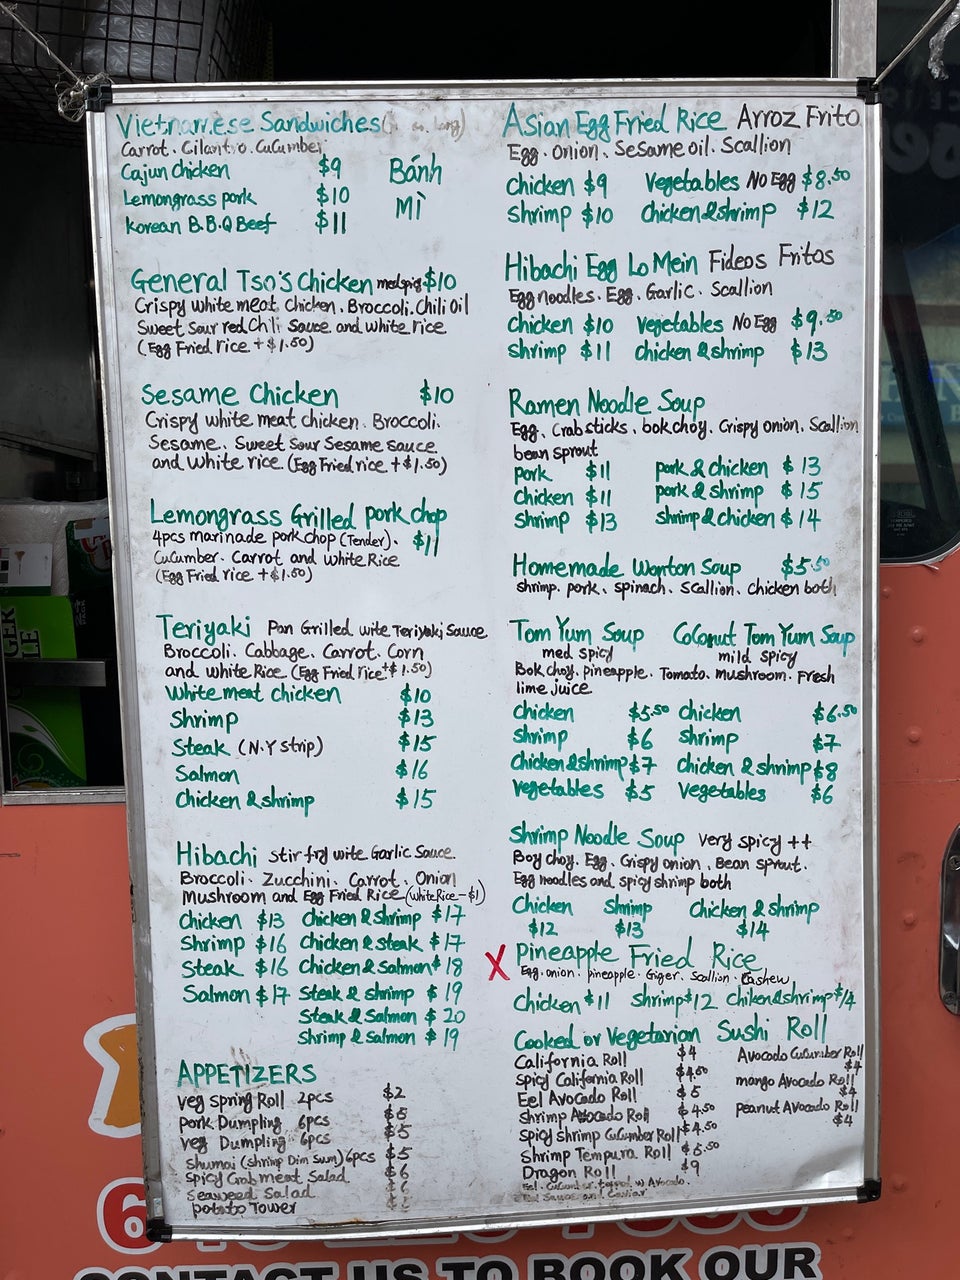 Vietnamese Sandwiches
Carrot. Cilantro. Cucumber
Cajun chicken $9
Lemongrass pork $10
Korean B.B.Q Beef $11
Bánh
Mì
General Tso's Chicken med spicy $10
Crispy white meat chicken. Broccoli. Chili Oil
Sweet Sour red Chili Sauce and white rice
(Egg Fried rice + $1.50)
Sesame Chicken $10
Crispy white meat chicken. Broccoli.
Sesame. Sweet Sour Sesame sauce
and white rice (Egg Fried rice +$1.50)
Lemongrass Grilled pork chop
4pcs marinade pork chop (Tender). $11
Cucumber. Carrot and white Rice
(Egg Fried rice +$1.50)
Teriyaki Pan Grilled wite Teriyaki Sauce
Broccoli. Cabbage. Carrot. Corn
and white Rice (Egg Fried rice +$1.50)
White meat chicken $10
Shrimp $13
Steak (N.Y strip) $15
Salmon $16
Chicken & shrimp $15
Hibachi stir fry wite Garlic Sauce
Broccoli. Zucchini. Carrot. Onion
Mushroom and Egg Fried Rice (white Rice -$1)
Chicken $13 Chicken & Shrimp $17
Shrimp $16 Chicken & steak $17
Steak $16 Chicken & Salmon $18
Salmon $17 Steak & shrimp $19
Steak & Salmon $20
Shrimp & Salmon $19
APPETIZERS
veg spring Roll 2pcs $2
pork Dumpling 6pcs $5
veg Dumpling 6pcs $5
shumai (shrimp Dim Sum) 6pcs $5
Spicy Crab meat Salad $6
Seaweed Salad
potato Tower
Asian Egg Fried Rice Arroz Frito
Egg. Onion. Sesame oil. Scallion
Chicken $9 Vegetables No Egg $8.50
Shrimp $10 Chicken & shrimp $12
Hibachi Egg Lo Mein Fideos Fritos
Egg noodles. Egg. Garlic. Scallion
Chicken $10 Vegetables No Egg $9.50
Shrimp $11 chicken & shrimp $13
Ramen Noodle Soup
Egg. Crab sticks. bok choy. Crispy onion. Scallion
bean sprout
Pork $11 pork & chicken $13
Chicken $11 pork & shrimp $15
Shrimp $13 Shrimp & chicken $14
Homemade Wonton Soup $5.50
shrimp. pork. spinach. scallion. chicken both
Tom Yum Soup Coconut Tom Yum Soup
med spicy mild spicy
Bok choy. pineapple. Tomato. mushroom. Fresh
lime juice
Chicken $5.50 Chicken $6.50
Shrimp $6 Shrimp $7
Chicken & shrimp $7 Chicken & shrimp $8
Vegetables $5 Vegetables $6
Shrimp Noodle Soup very spicy ++
Boy choy. Egg. Crispy onion. Bean sprout.
Egg noodles and spicy shrimp both
Chicken Shrimp Chicken & shrimp
$12 $13 $14
X Pineapple Fried Rice
Egg. onion. pineapple. Giger. Scallion. Cashew
Chicken $11 Shrimp $12 Chiken & shrimp $14
Cooked or Vegetarian Sushi Roll
California Roll $4
Spicy California Roll $4.50
Eel Avocado Roll $5
Shrimp Avocado Roll $4.50
Spicy Shrimp Cucumber Roll $4.50
Shrimp Tempura Roll $5.50
Dragon Roll $9
Eel. Cucumber. topped w Avocado.
Eel Sauce and Caviar
Avocado Cucumber Roll
$4
mango Avocado Roll
$4
peanut Avocado Roll
$4
CONTACT US TO BOOK OUR